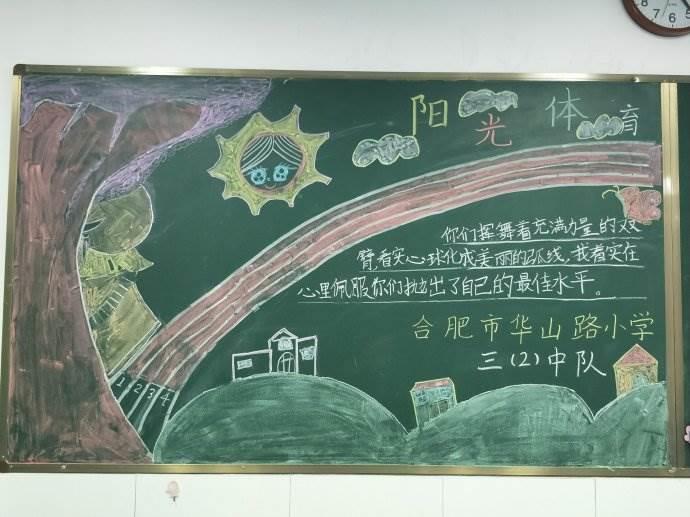 阳光体育
你们挥舞着充满力量的双
臂,看实心球化成美丽的弧线,我着实在
心里佩服你们抛出了自己的最佳水平。
合肥市华山路小学
三(2)中队
1 2 3 4
8 7 6 5